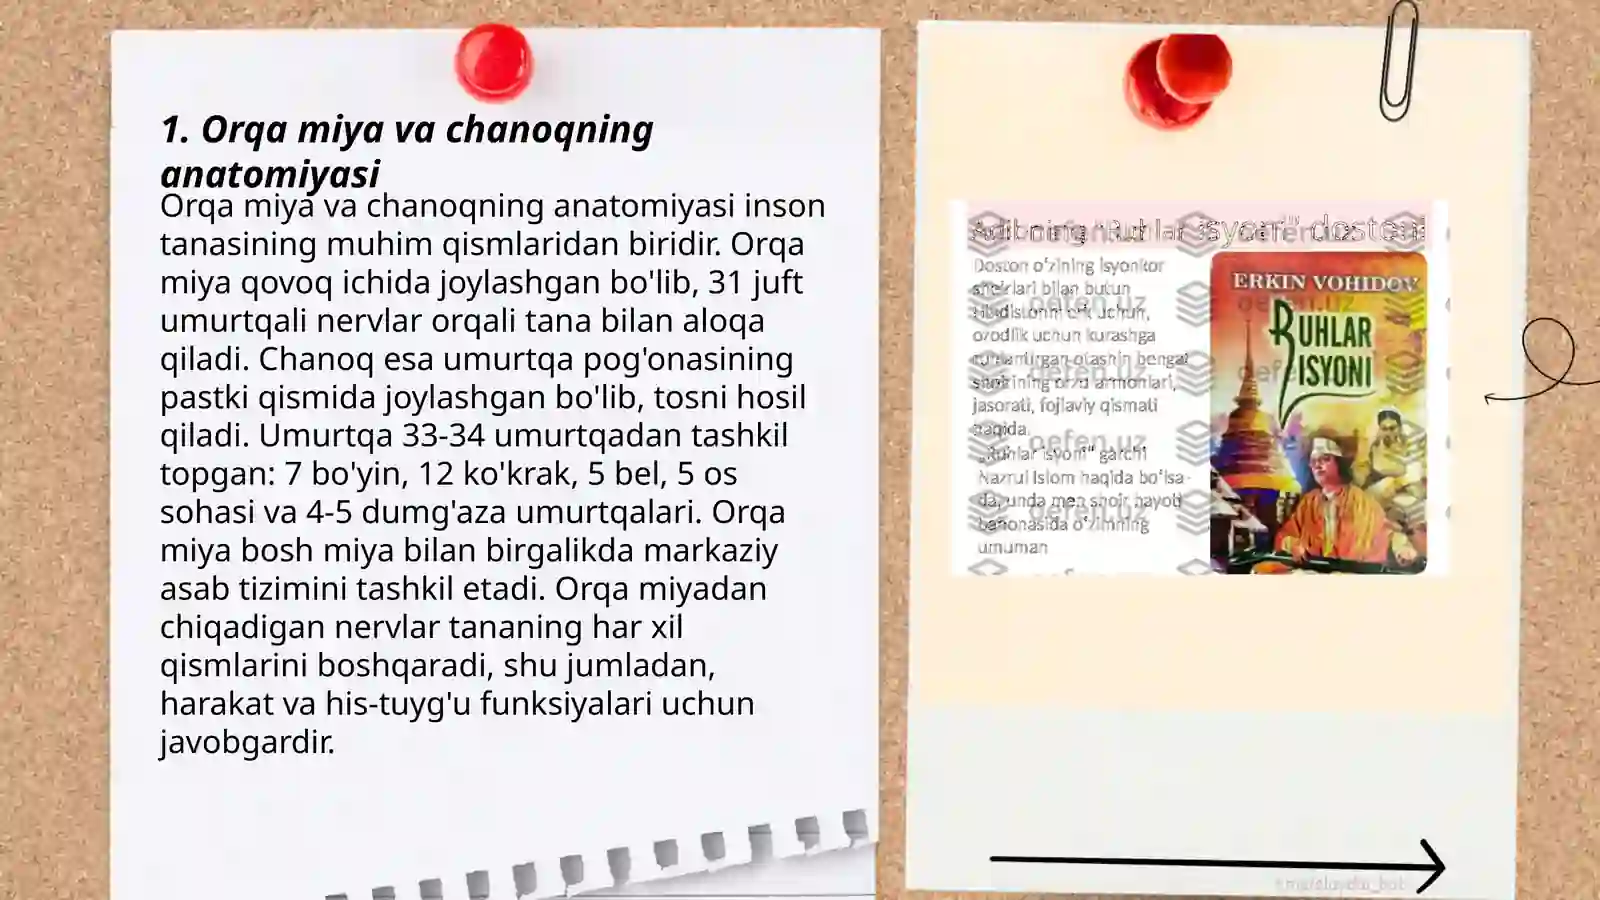 1. Orqa miya va chanoqning
anatomiyasi
Orqa miya va chanoqning anatomiyasi inson
tanasining muhim qismlaridan biridir. Orqa
miya qovoq ichida joylashgan bo'lib, 31 juft
umurtqali nervlar orqali tana bilan aloqa
qiladi. Chanoq esa umurtqa pog'onasining
pastki qismida joylashgan bo'lib, tosni hosil
qiladi. Umurtqa 33-34 umurtqadan tashkil
topgan: 7 bo'yin, 12 ko'krak, 5 bel, 5 os
sohasi va 4-5 dumg'aza umurtqalari. Orqa
miya bosh miya bilan birgalikda markaziy
asab tizimini tashkil etadi. Orqa miyadan
chiqadigan nervlar tananing har xil
qismlarini boshqaradi, shu jumladan,
harakat va his-tuyg'u funksiyalari uchun
javobgardir.
Adibning "Ruhlar isyoni" dostoni
Doston o'zining isyonkor
she'rlari bilan butun
Hindistonni erk uchun,
ozodlik uchun kurashga
otashin bengal
shoirining orzu armonlari,
jasorati, fojiaviy qismati
haqida.
"Ruhlar isyoni" garchi
Nazrul Islom haqida bo'lsa-
da, unda men shoir hayoti
bahonasida o'zimning
umuman
ERKIN VOHIDOV
RUHLAR
ISYONI
oefen.uz
oefen.uz
oefen.uz
oefen.uz